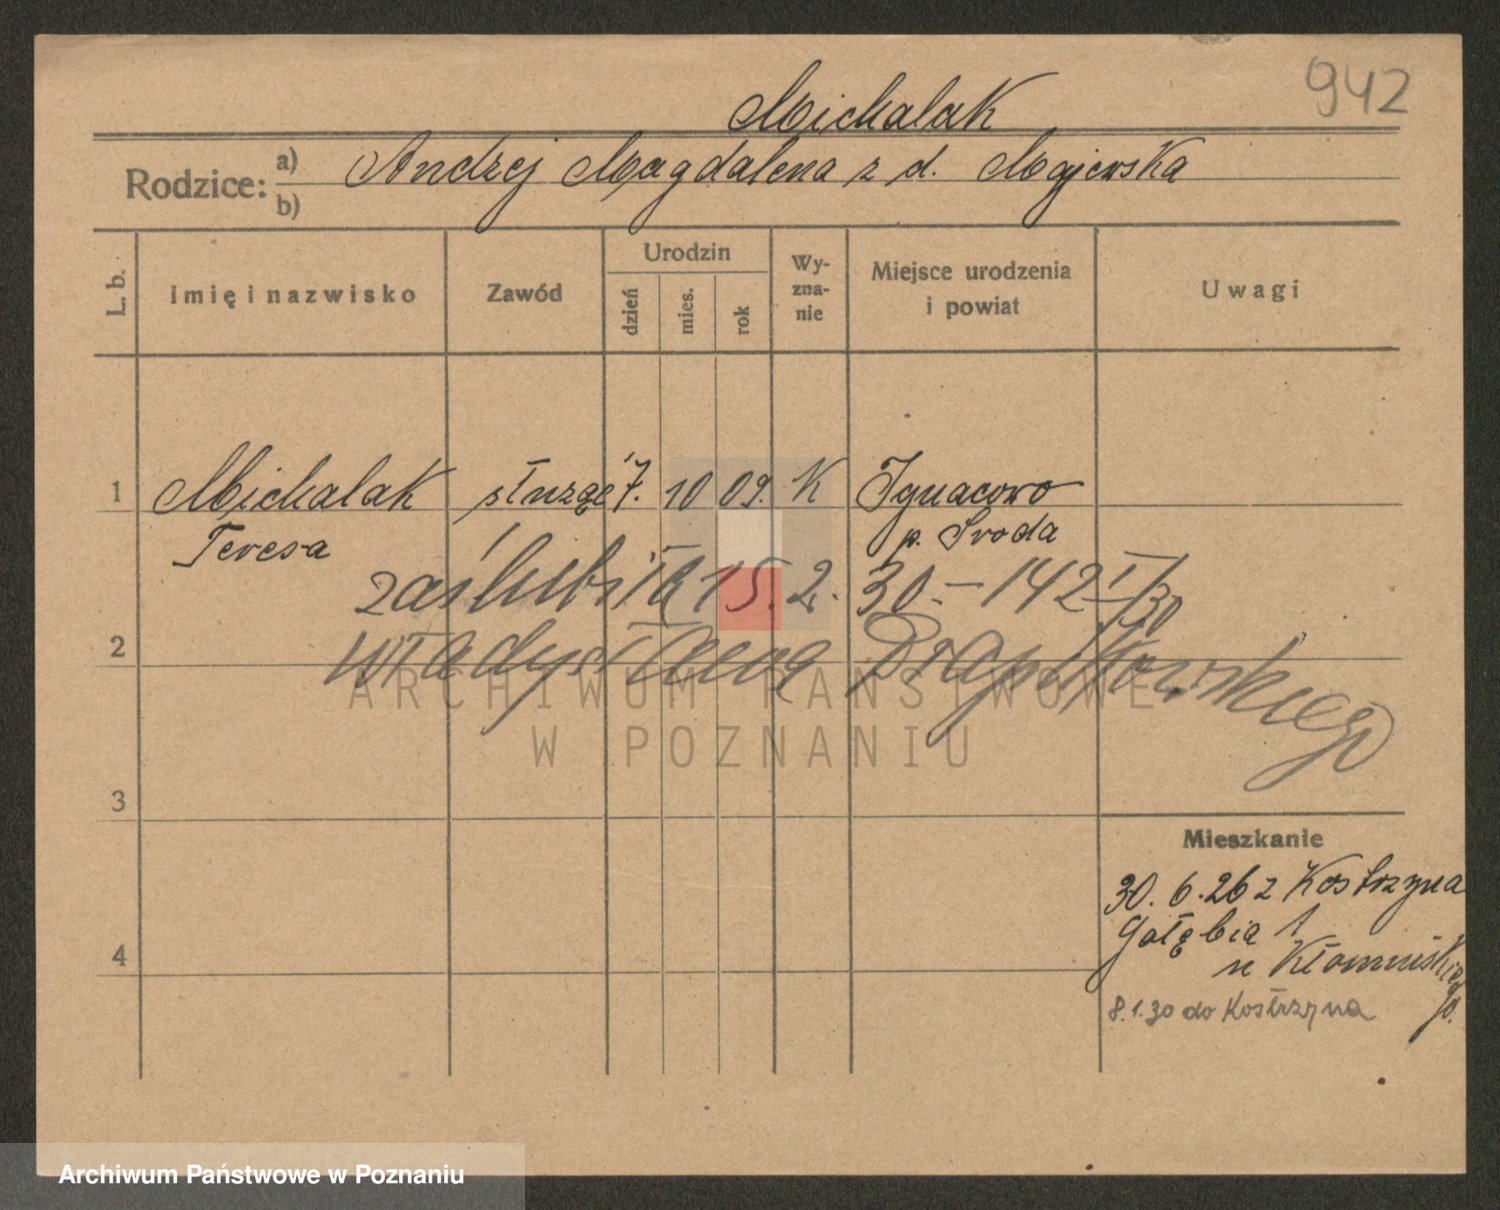 942
Michalak
Rodzice: a) b) Andrzej Magdalena z d. Majewska
L. b. Imię i nazwisko Zawód Urodzin dzień mies. rok Wy-zna-nie Miejsce urodzenia i powiat Uwagi
1 Michalak służące 7. 10 09. K Ignacowo
Teresa p. Środa
zaślubiła 15. 2. 30. – 142 I/30
2 Władysława Drapikowskiego
ARCHIWUM PAŃSTWOWE
W POZNANIU
3
Mieszkanie
30. 6. 26 z Kostrzyna
Gołębia 1
4 u Kłomińskiego.
8.1.30 do Kostrzyna
Archiwum Państwowe w Poznaniu